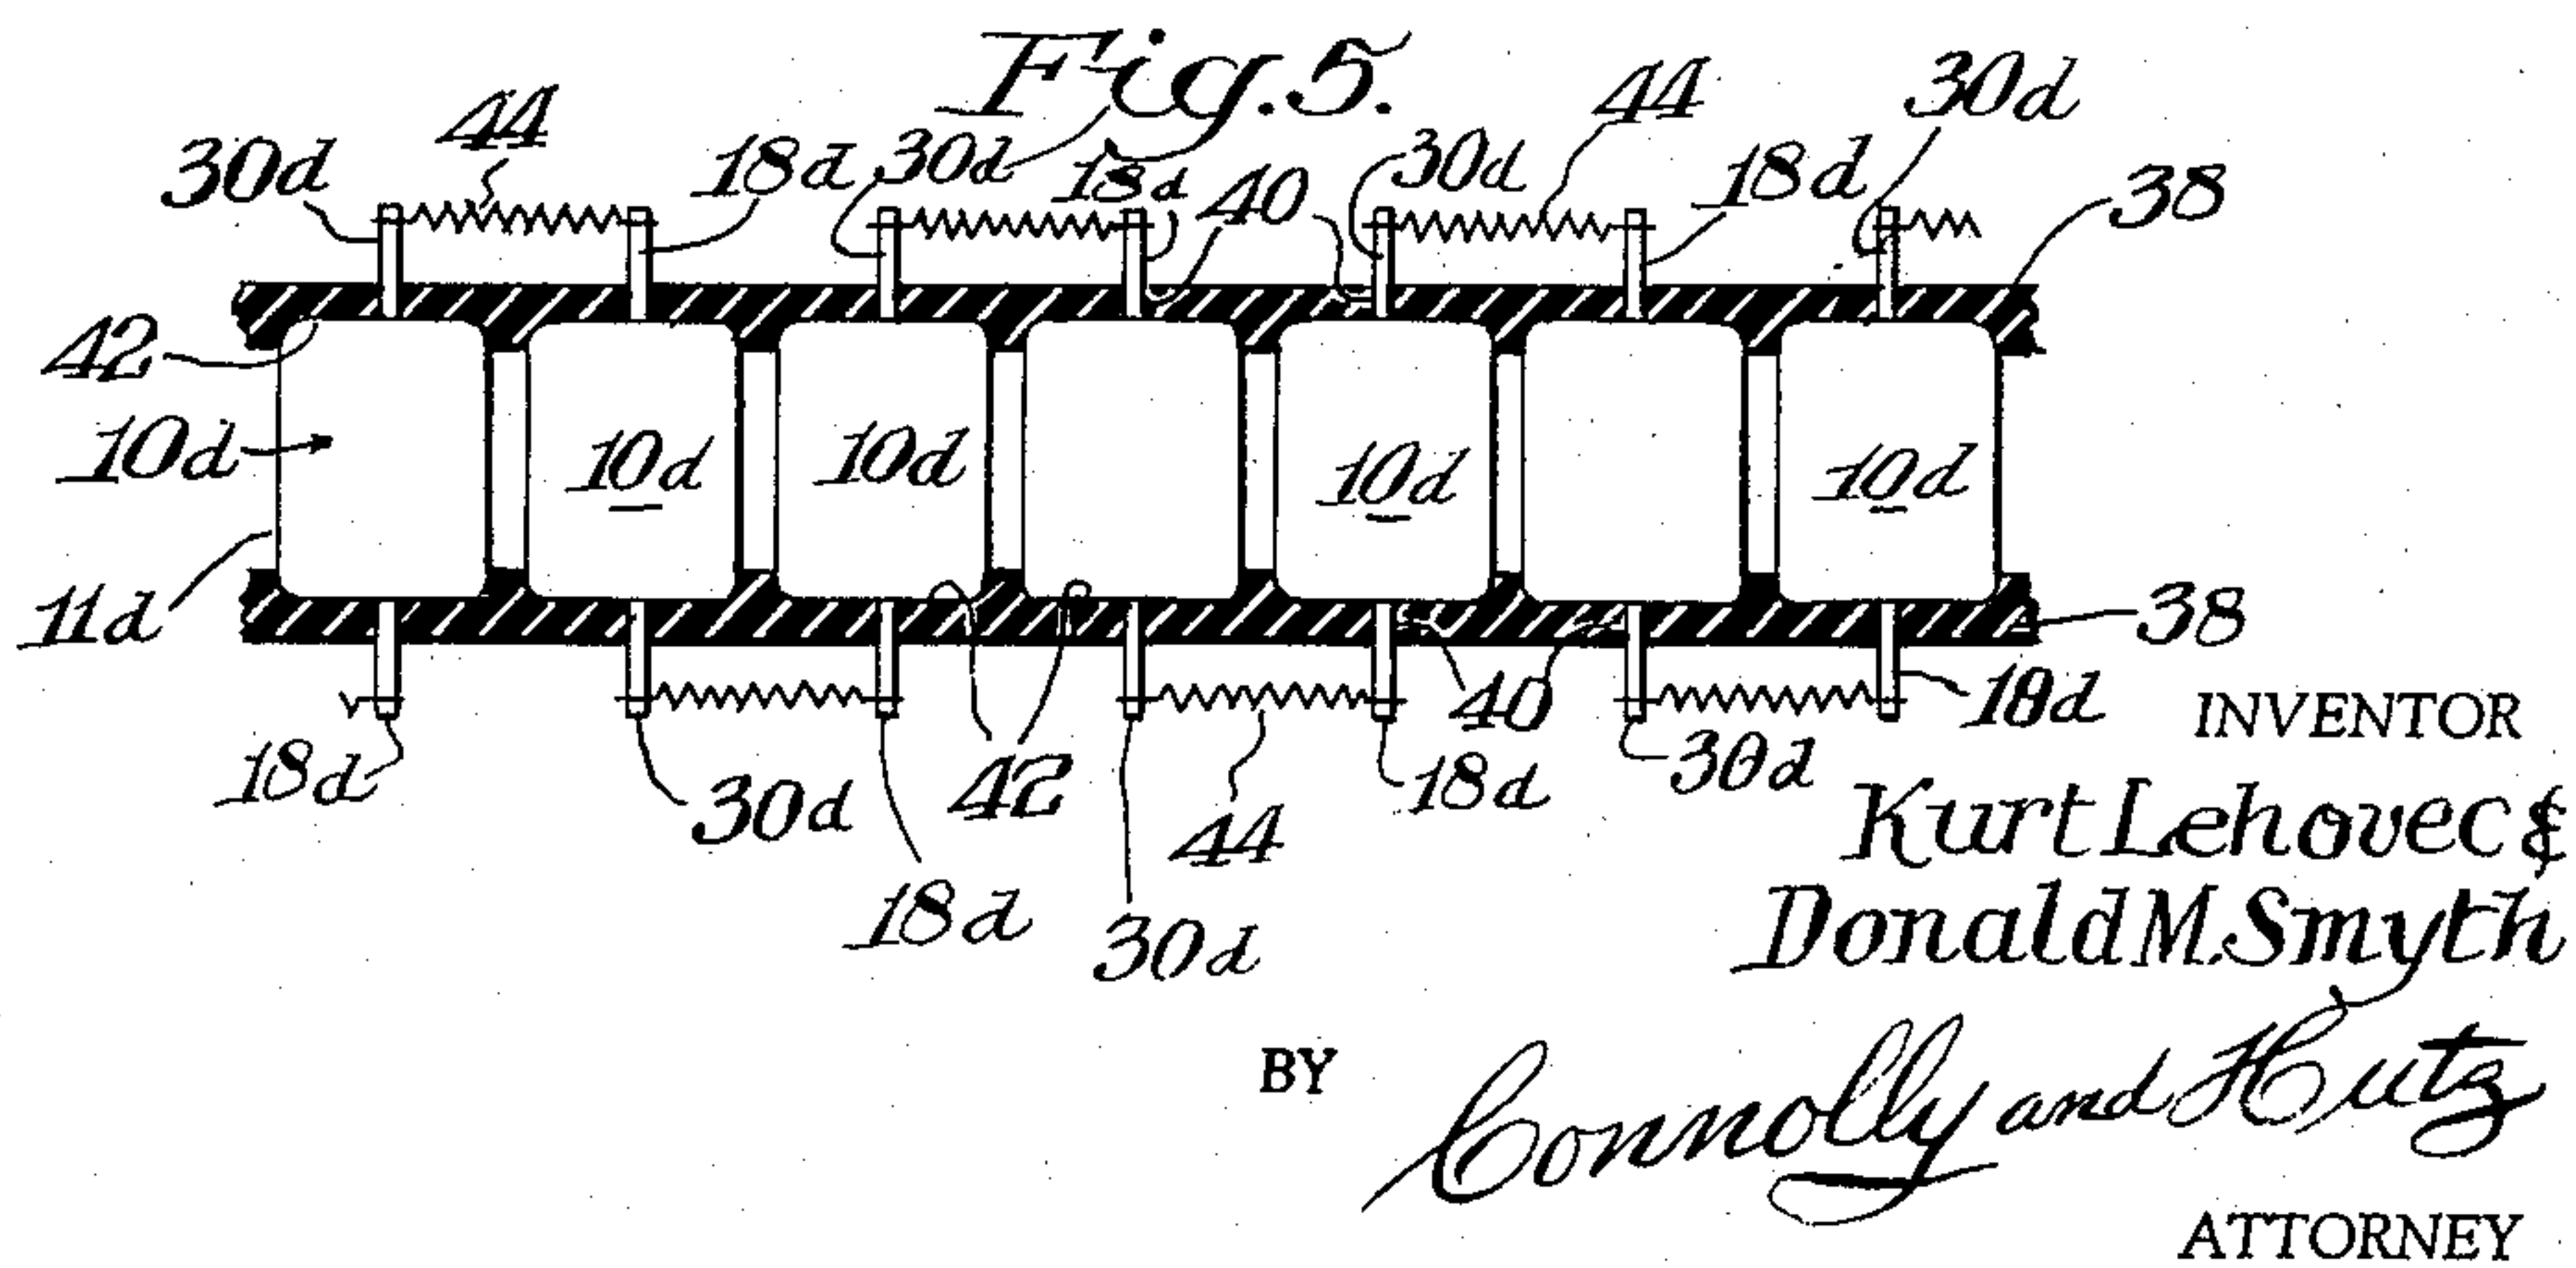 Fig. 5.
30d 44 18d 30d 18d 40 30d 44 18d 30d 38
42
10d 10d 10d 10d 10d
11d 38
18d 30d 18d 42 30d 44 18d 40 30d 18d
INVENTOR
Kurt Lehovec &
Donald M. Smyth
BY Connolly and Hutz
ATTORNEY